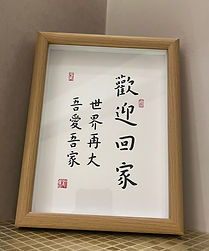 歡迎回家
世界再大
吾愛吾家